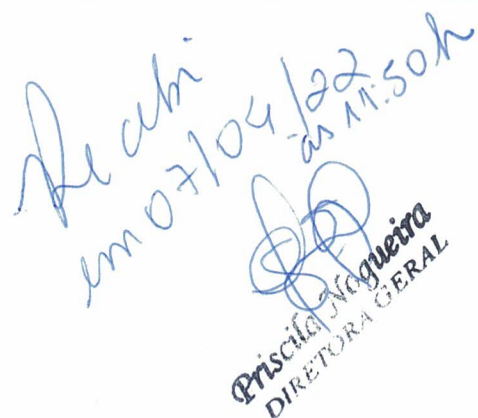 Recebi
em 07/04/22
às 11:50h
Priscila Nogueira
DIRETORA GERAL